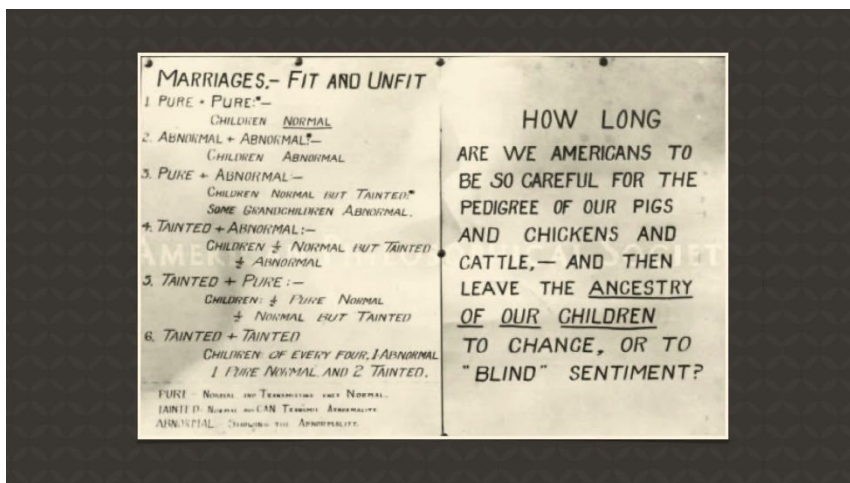 MARRIAGES,- FIT AND UNFIT
1. PURE + PURE:-
CHILDREN NORMAL
2. ABNORMAL + ABNORMAL:-
CHILDREN ABNORMAL
3. PURE + ABNORMAL:-
CHILDREN NORMAL BUT TAINTED.
SOME GRANDCHILDREN ABNORMAL.
4. TAINTED + ABNORMAL:-
CHILDREN ½ NORMAL BUT TAINTED
½ ABNORMAL
5. TAINTED + PURE:-
CHILDREN: ½ PURE NORMAL
½ NORMAL BUT TAINTED
6. TAINTED + TAINTED
CHILDREN: OF EVERY FOUR, 1 ABNORMAL
1 PURE NORMAL AND 2 TAINTED.
PURE - NORMAL AND TRANSMITTING ONLY NORMAL.
TAINTED- NORMAL BUT CAN TRANSMIT ABNORMALITY
ABNORMAL- SHOWING THE ABNORMALITY.
HOW LONG
ARE WE AMERICANS TO
BE SO CAREFUL FOR THE
PEDIGREE OF OUR PIGS
AND CHICKENS AND
CATTLE,- AND THEN
LEAVE THE ANCESTRY
OF OUR CHILDREN
TO CHANGE, OR TO
"BLIND" SENTIMENT?